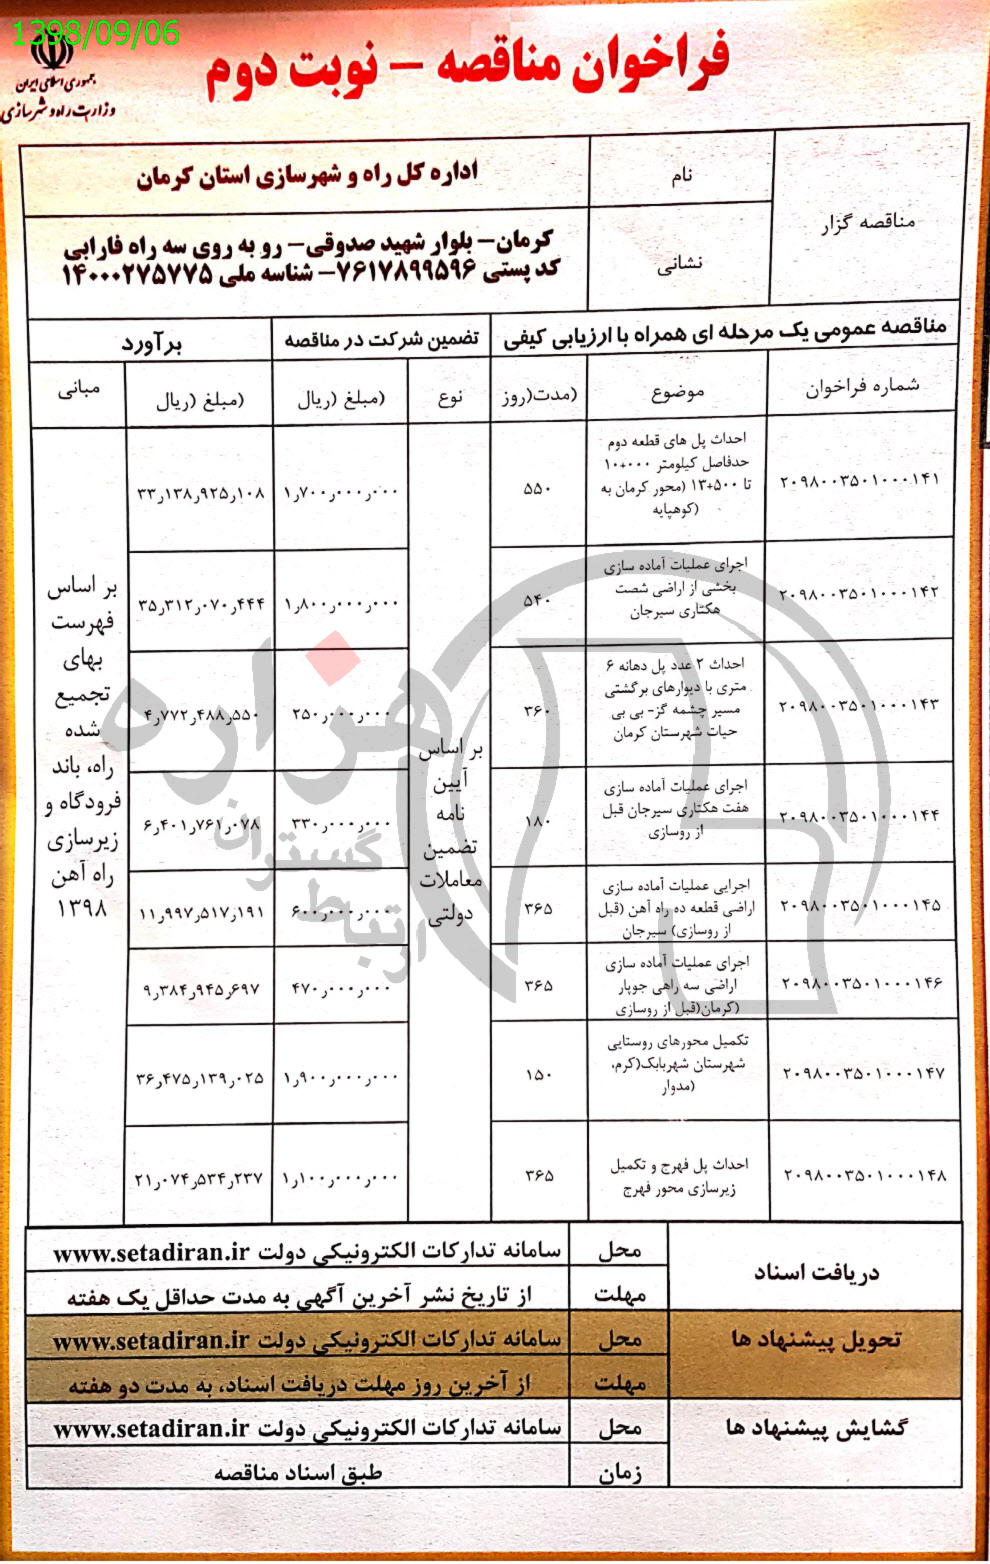 1398/09/06
جمهوری اسلامی ایران
وزارت راه و شهرسازی
فراخوان مناقصه – نوبت دوم
مناقصه گزار
نام
اداره کل راه و شهرسازی استان کرمان
نشانی
کرمان– بلوار شهید صدوقی– رو به روی سه راه فارابی
کد پستی ۷۶۱۷۸۹۹۵۹۶– شناسه ملی ۱۴۰۰۰۲۷۵۷۷۵
مناقصه عمومی یک مرحله ای همراه با ارزیابی کیفی
تضمین شرکت در مناقصه
برآورد
شماره فراخوان
موضوع
(مدت(روز
نوع
(مبلغ (ریال
(مبلغ (ریال
مبانی
۲۰۹۸۰۰۳۵۰۱۰۰۰۱۴۱
احداث پل های قطعه دوم
حدفاصل کیلومتر ۱۰+۰۰۰
تا ۱۳+۵۰۰ (محور کرمان به
(کوهپایه
۵۵۰
۱٫۷۰۰٫۰۰۰٫۰۰۰
۳۳٫۱۳۸٫۹۲۵٫۱۰۸
۲۰۹۸۰۰۳۵۰۱۰۰۰۱۴۲
اجرای عملیات آماده سازی
بخشی از اراضی شصت
هکتاری سیرجان
۵۴۰
۱٫۸۰۰٫۰۰۰٫۰۰۰
۳۵٫۳۱۲٫۰۷۰٫۴۴۴
۲۰۹۸۰۰۳۵۰۱۰۰۰۱۴۳
احداث ۲ عدد پل دهانه ۶
متری با دیوارهای برگشتی
مسیر چشمه گز- بی بی
حیات شهرستان کرمان
۳۶۰
۲۵۰٫۰۰۰٫۰۰۰
۴٫۷۷۲٫۴۸۸٫۵۵۰
۲۰۹۸۰۰۳۵۰۱۰۰۰۱۴۴
اجرای عملیات آماده سازی
هفت هکتاری سیرجان قبل
از روسازی
۱۸۰
۳۳۰٫۰۰۰٫۰۰۰
۶٫۴۰۱٫۷۶۱٫۰۷۸
۲۰۹۸۰۰۳۵۰۱۰۰۰۱۴۵
اجرایی عملیات آماده سازی
اراضی قطعه ده راه آهن (قبل
از روسازی) سیرجان
۳۶۵
۶۰۰٫۰۰۰٫۰۰۰
۱۱٫۹۹۷٫۵۱۷٫۱۹۱
۲۰۹۸۰۰۳۵۰۱۰۰۰۱۴۶
اجرای عملیات آماده سازی
اراضی سه راهی جوپار
(کرمان(قبل از روسازی
۳۶۵
۴۷۰٫۰۰۰٫۰۰۰
۹٫۳۸۴٫۹۴۵٫۶۹۷
۲۰۹۸۰۰۳۵۰۱۰۰۰۱۴۷
تکمیل محورهای روستایی
شهرستان شهربابک(کرم،
(مدوار
۱۵۰
۱٫۹۰۰٫۰۰۰٫۰۰۰
۳۶٫۴۷۵٫۱۳۹٫۰۲۵
۲۰۹۸۰۰۳۵۰۱۰۰۰۱۴۸
احداث پل فهرج و تکمیل
زیرسازی محور فهرج
۳۶۵
۱٫۱۰۰٫۰۰۰٫۰۰۰
۲۱٫۰۷۴٫۵۳۴٫۲۳۷
بر اساس
آیین
نامه
تضمین
معاملات
دولتی
بر اساس
فهرست
بهای
تجمیع
شده
راه، باند
فرودگاه و
زیرسازی
راه آهن
۱۳۹۸
هزاره
گستران
ارتباط
دریافت اسناد
محل
سامانه تدارکات الکترونیکی دولت www.setadiran.ir
مهلت
از تاریخ نشر آخرین آگهی به مدت حداقل یک هفته
تحویل پیشنهاد ها
محل
سامانه تدارکات الکترونیکی دولت www.setadiran.ir
مهلت
از آخرین روز مهلت دریافت اسناد، به مدت دو هفته
گشایش پیشنهاد ها
محل
سامانه تدارکات الکترونیکی دولت www.setadiran.ir
زمان
طبق اسناد مناقصه